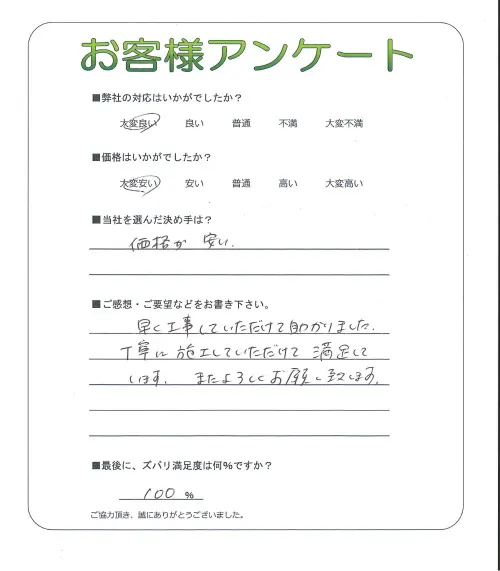 お客様アンケート
■弊社の対応はいかがでしたか？
大変良い 良い 普通 不満 大変不満
■価格はいかがでしたか？
大変安い 安い 普通 高い 大変高い
■当社を選んだ決め手は？
価格が 安い.
■ご感想・ご要望などをお書き下さい。
早く工事していただけて助かりました.
丁寧に 施工していただけて 満足して
います. またよろしくお願い致します.
■最後に、ズバリ満足度は何%ですか？
100 %
ご協力頂き、誠にありがとうございました。